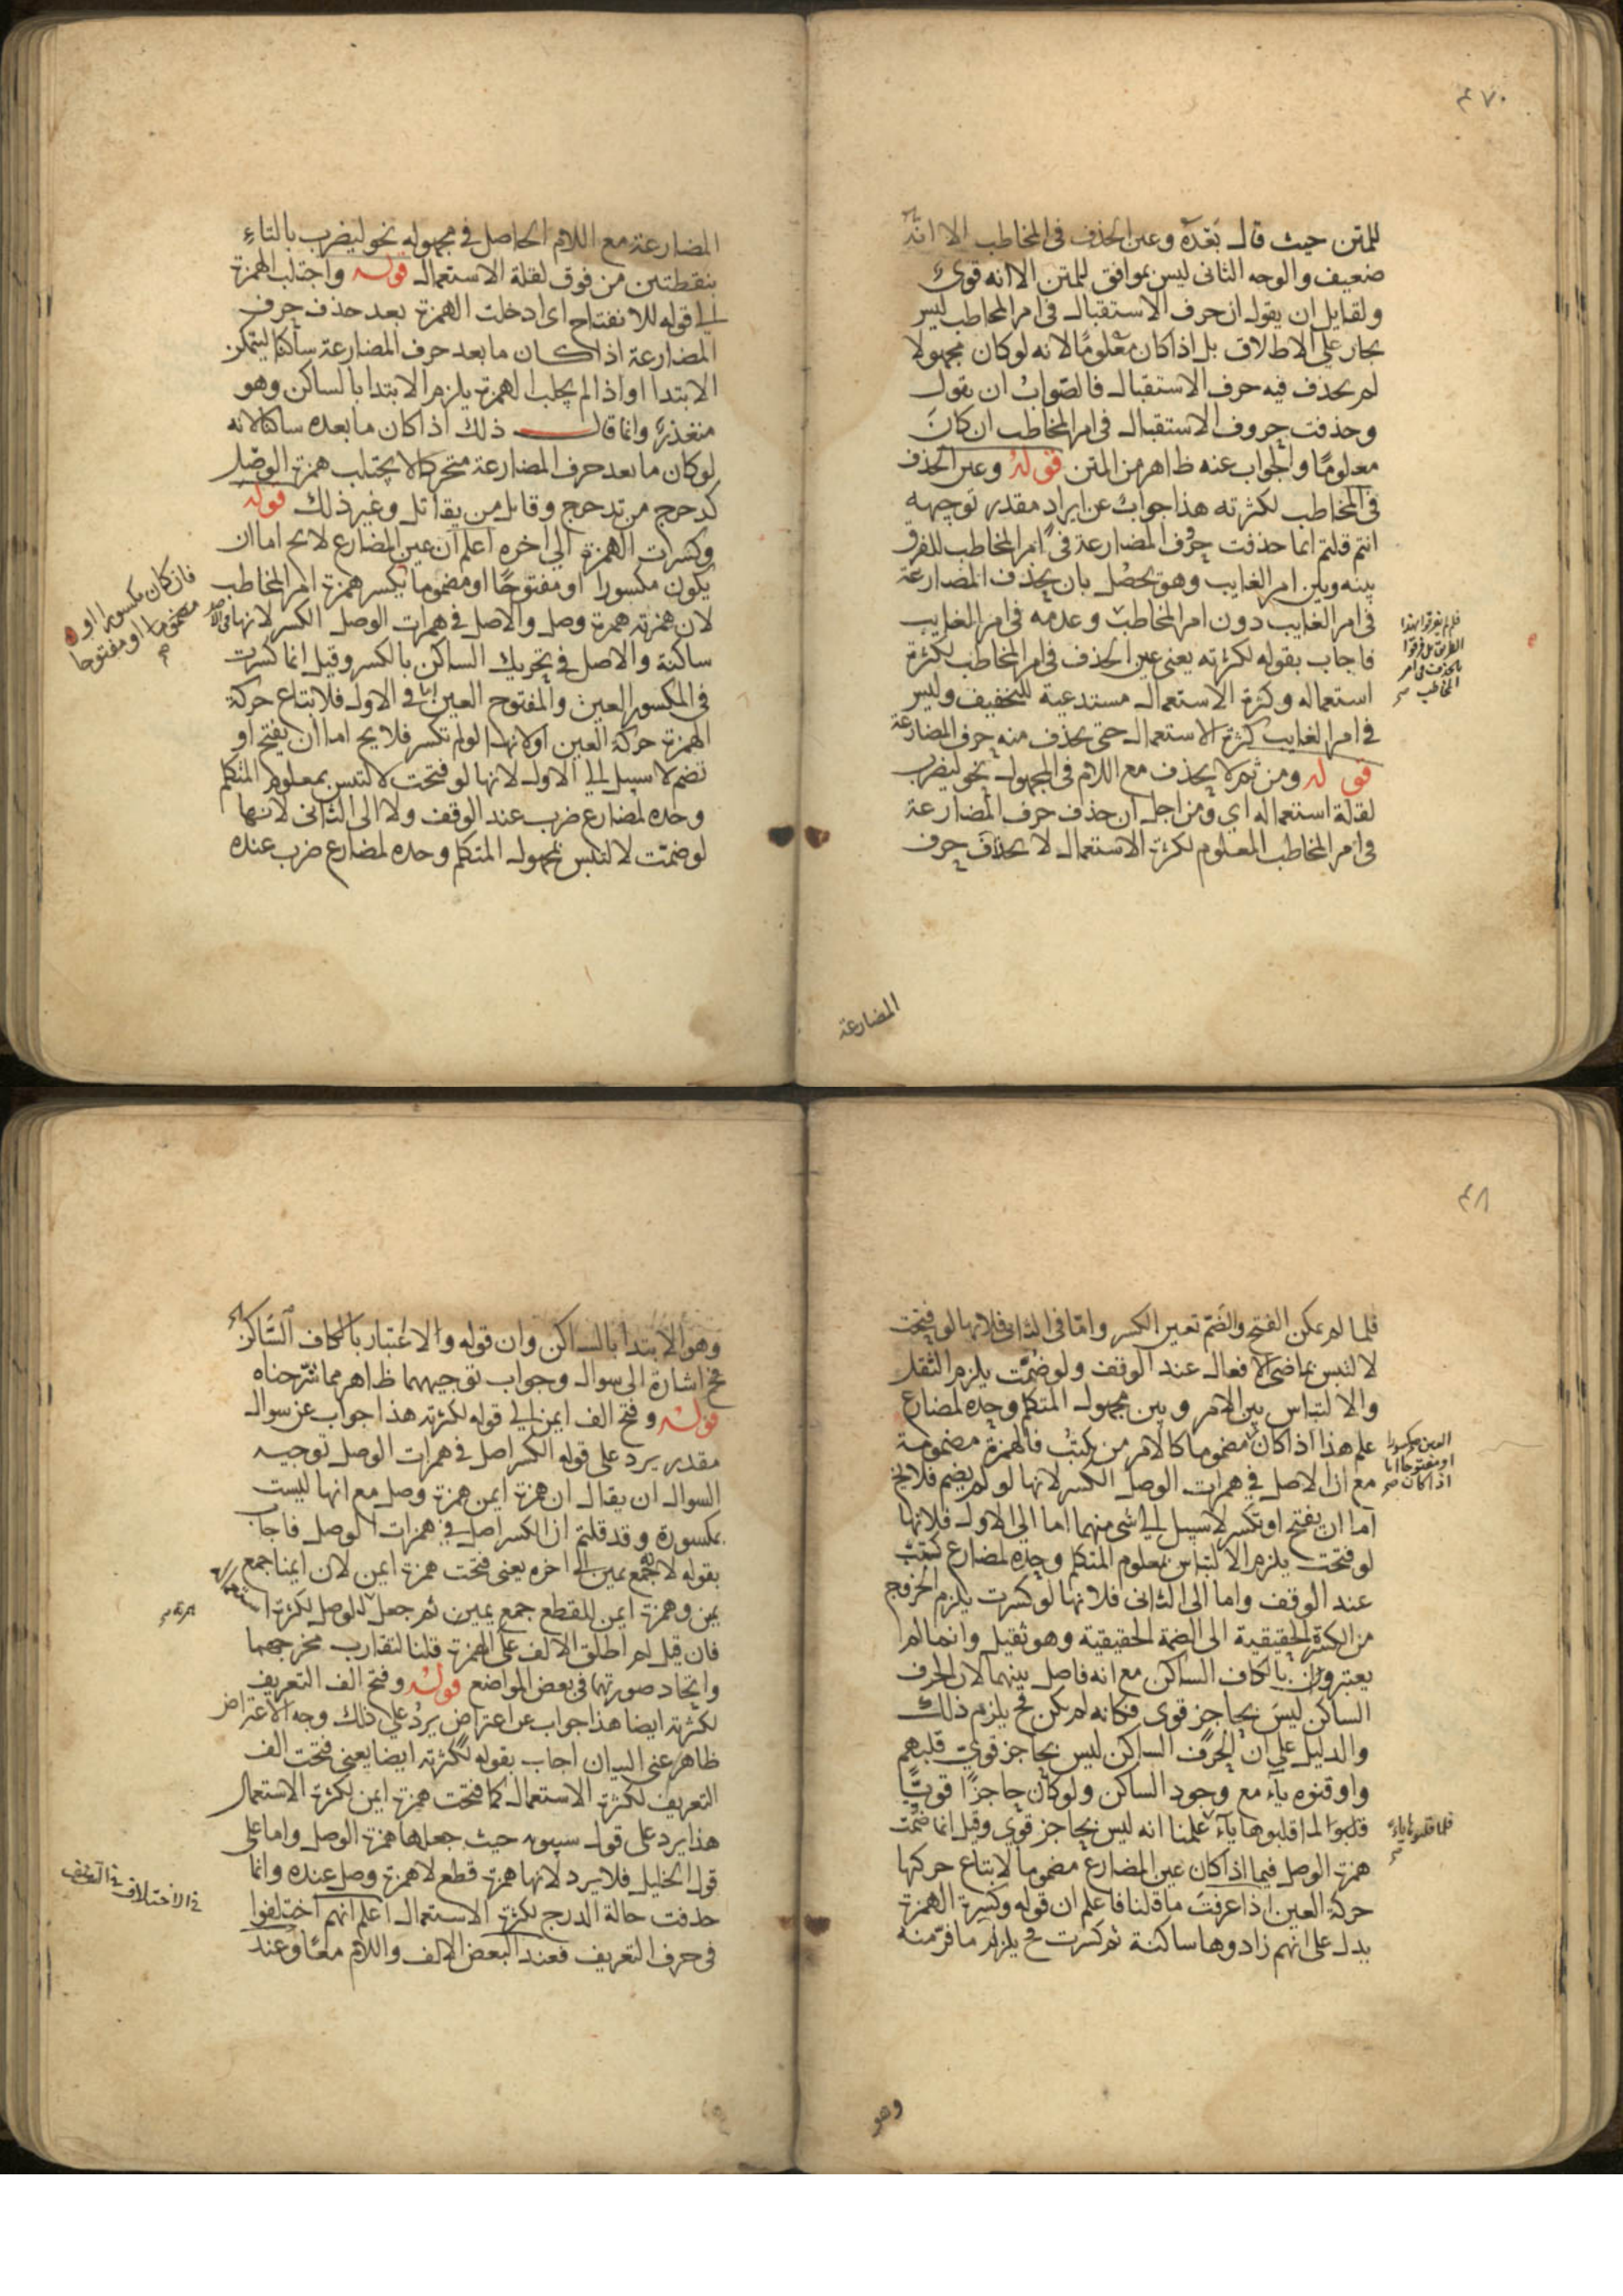 ٤٧٠
للمتن حيث قال بعده وعين الحذف فى المخاطب الا انه
ضعيف والوجه الثانى ليس بموافق للمتن الا انه قوى
ولقايل ان يقول ان حرف الاستقبال فى امر المخاطب ليس
بجار على الاطلاق بل اذا كان معلومًا لانه لو كان مجهولا
لم يحذف فيه حرف الاستقبال فالصواب ان يقول
وحذفت حروف الاستقبال فى امر المخاطب ان كان
معلومًا والجواب عنه ظاهر من المتن قوله وعين الحذف
فى المخاطب لكثرته هذا جواب عن ايراد مقدر توجيهه
انتم قلتم انما حذفت حرف المضارعة فى امر المخاطب للفرق
بينه وبين امر الغايب وهو يحصل بان يحذف المضارعة
فى امر الغايب دون امر المخاطب وعدمه فى امر الغايب
فاجاب بقوله لكثرته يعنى عين الحذف فى امر المخاطب لكثرة
استعماله وكثرة الاستعمال مستدعية للتخفيف وليس
فى امر الغايب كثرة الاستعمال حتى يحذف منه حرف المضارعة
قوله ومن ثم لا يحذف مع اللام فى المجهول نحو ليضرب
لقلة استعماله اي ومن اجل ان حذف حرف المضارعة
فى امر المخاطب المعلوم لكثرة الاستعمال لا يحذف حرف
فلم يفرقوا بهذا
الطريق بل فرقوا
بالحذف فى امر
المخاطب صح
المضارعة
المضارعة مع اللام الحاصل فى مجهوله نحو ليضرب بالتاء
بنقطتين من فوق لقلة الاستعمال قوله واجتلب الهمزة
الى قوله للافتتاح اى ادخلت الهمزة بعد حذف حرف
المضارعة اذا كان ما بعد حرف المضارعة ساكنا ليتمكن
الابتدا او اذا لم يجلب الهمزة يلزم الابتدا بالساكن وهو
متعذر وانما قال ذلك اذا كان ما بعده ساكنا لانه
لو كان ما بعد حرف المضارعة متحركا لا يجتلب همزة الوصل
كدحرج من تدحرج وقاتل من يقاتل وغير ذلك قوله
وكسرت الهمزة الى اخره اعلم ان عين المضارع لا يح اما ان
يكون مكسورا او مفتوحًا او مضموما يكسر همزة امر المخاطب
لان همزته همزة وصل والاصل فى همزات الوصل الكسر لانها فى الاصل
ساكنة والاصل فى تحريك الساكن بالكسر وقيل انما كسرت
فى المكسور العين والمفتوح العين اما فى الاول فلاتباع حركة
الهمزة حركة العين او لانها لو لم تكسر فلا يح اما ان يفتح او
تضم لا سبيل الى الاول لانها لو فتحت لالتبس بمعلوم المتكلم
وحده لمضارع ضرب عند الوقف ولا الى الثانى لانها
لو ضمت لالتبس بمجهول المتكلم وحده لمضارع ضرب عنده
فان كان مكسورا او
مضموما او مفتوحا
صح
٤٨
فلما لم يمكن الفتح والضم تعين الكسر واما فى الثانى فلانها لو فتحت
لالتبس بماضى الافعال عند الوقف ولو ضمت يلزم الثقل
والالتباس بين الامر وبين مجهول المتكلم وحده لمضارع
علم هذا اذا كان مضموما كالامر من يكتب فالهمزة مضمومة
مع ان الاصل فى همزات الوصل الكسر لانها لو لم يضم فلا يح
اما ان يفتح او تكسر لا سبيل الى شى منهما اما الى الاول فلانها
لو فتحت يلزم الالتباس بمعلوم المتكلم وحده لمضارع كتب
عند الوقف واما الى الثانى فلانها لو كسرت يلزم الخروج
من الكسرة الحقيقية الى الضمة الحقيقية وهو ثقيل وانما لم
يعتبرون بالكاف الساكن مع انه فاصل بينهما لان الحرف
الساكن ليس بحاجز قوى فكانه لم يكن فح يلزم ذلك
والدليل على ان الحرف الساكن ليس بحاجز قوى قلبهم
واو قنوه ياء مع وجود الساكن ولو كان حاجزًا قويًا
قلبوا لما قلبوها ياء علمنا انه ليس بحاجز قوى وقيل انما ضمت
همزة الوصل فيما اذا كان عين المضارع مضموما لاتباع حركتها
حركة العين اذا عرفت ما قلنا فاعلم ان قوله وكسرة الهمزة
يدل على انهم زادوها ساكنة ثم كسرت فح يلزم ما فر منه
العين مكسورا
او مفتوحا اما
اذا كان صح
فلما قلبوها ياء
صح
وهو
وهو الابتدا بالساكن وان قوله والاعتبار بالكاف الساكن
فح اشارة الى سوال وجواب توجيههما ظاهر مما شرحناه
قوله وفتح الف ايمن الى قوله لكثرته هذا جواب عن سوال
مقدر يرد على قوله الكسر اصل فى همزات الوصل توجيه
السوال ان يقال ان همزة ايمن همزة وصل مع انها ليست
بمكسورة وقد قلتم ان الكسر اصل فى همزات الوصل فاجاب
بقوله لانه جمع يمين الى اخره يعنى فتحت همزة ايمن لان ايمنا جمع
يمين وهمزة ايمن للقطع جمع يمين ثم جعل للوصل لكثرة استعماله
فان قيل لم اطلق الالف على الهمزة قلنا لتقارب مخرجهما
واتحاد صورتهما فى بعض المواضع قوله وفتح الف التعريف
لكثرته ايضا هذا جواب عن اعتراض يرد على ذلك وجه الاعتراض
ظاهر غنى البيان اجاب بقوله لكثرته ايضا يعنى فتحت الف
التعريف لكثرة الاستعمال كما فتحت همزة ايمن لكثرة الاستعمال
هذا يرد على قول سيبويه حيث جعلها همزة الوصل واما على
قول الخليل فلا يرد لانها همزة قطع لا همزة وصل عنده وانما
حذفت حالة الدرج لكثرة الاستعمال اعلم انهم اختلفوا
فى حرف التعريف فعند البعض الالف واللام معًا وعند